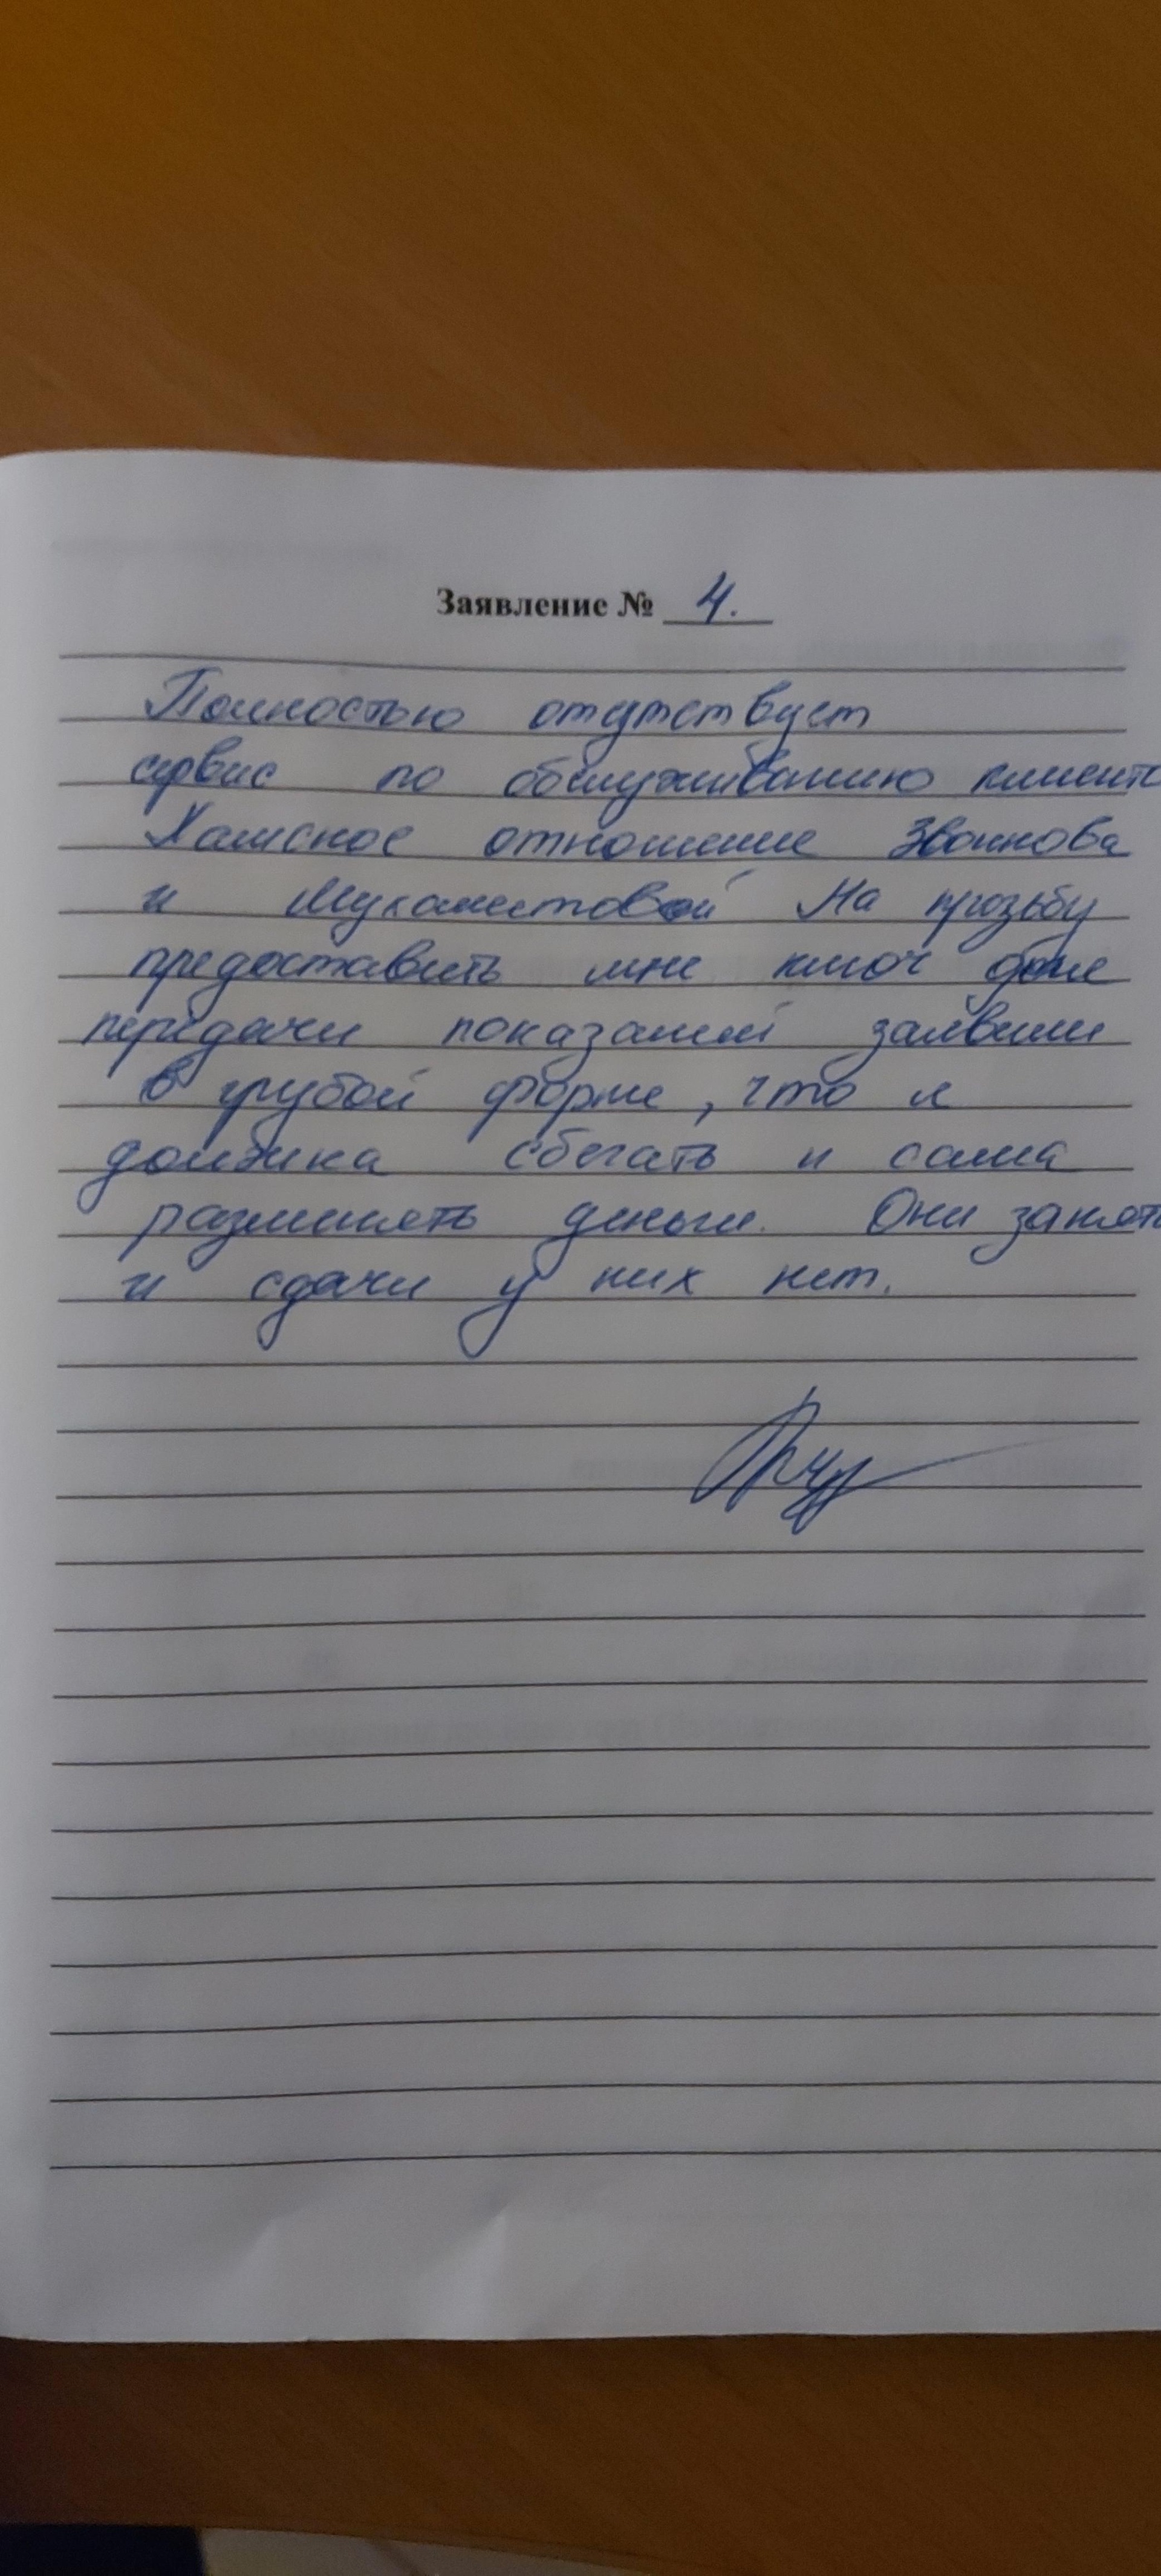 Заявление № 4.
Полностью отсутствует
сервис по обслуживанию клиенто
Хамское отношение Звонкова
и Мухаметовой На прозьбу
предоставить мне ключ для
передачи показаний заявили
в грубой форме, что я
должна сбегать и сама
разменять деньги. Они занять
и сдачи у них нет.